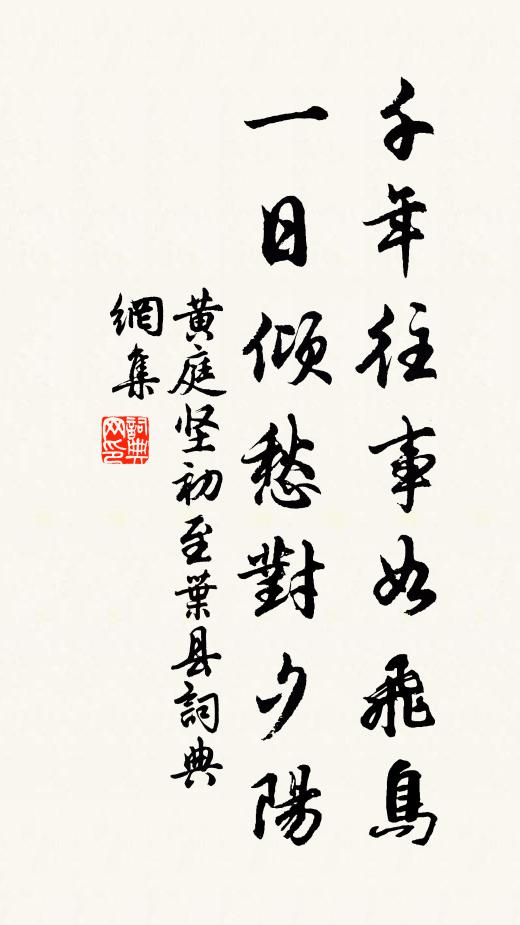 千年往事如飛鳥
一日傾愁對夕陽
黄庭坚初至葉县詞典
網集
詞典
网印